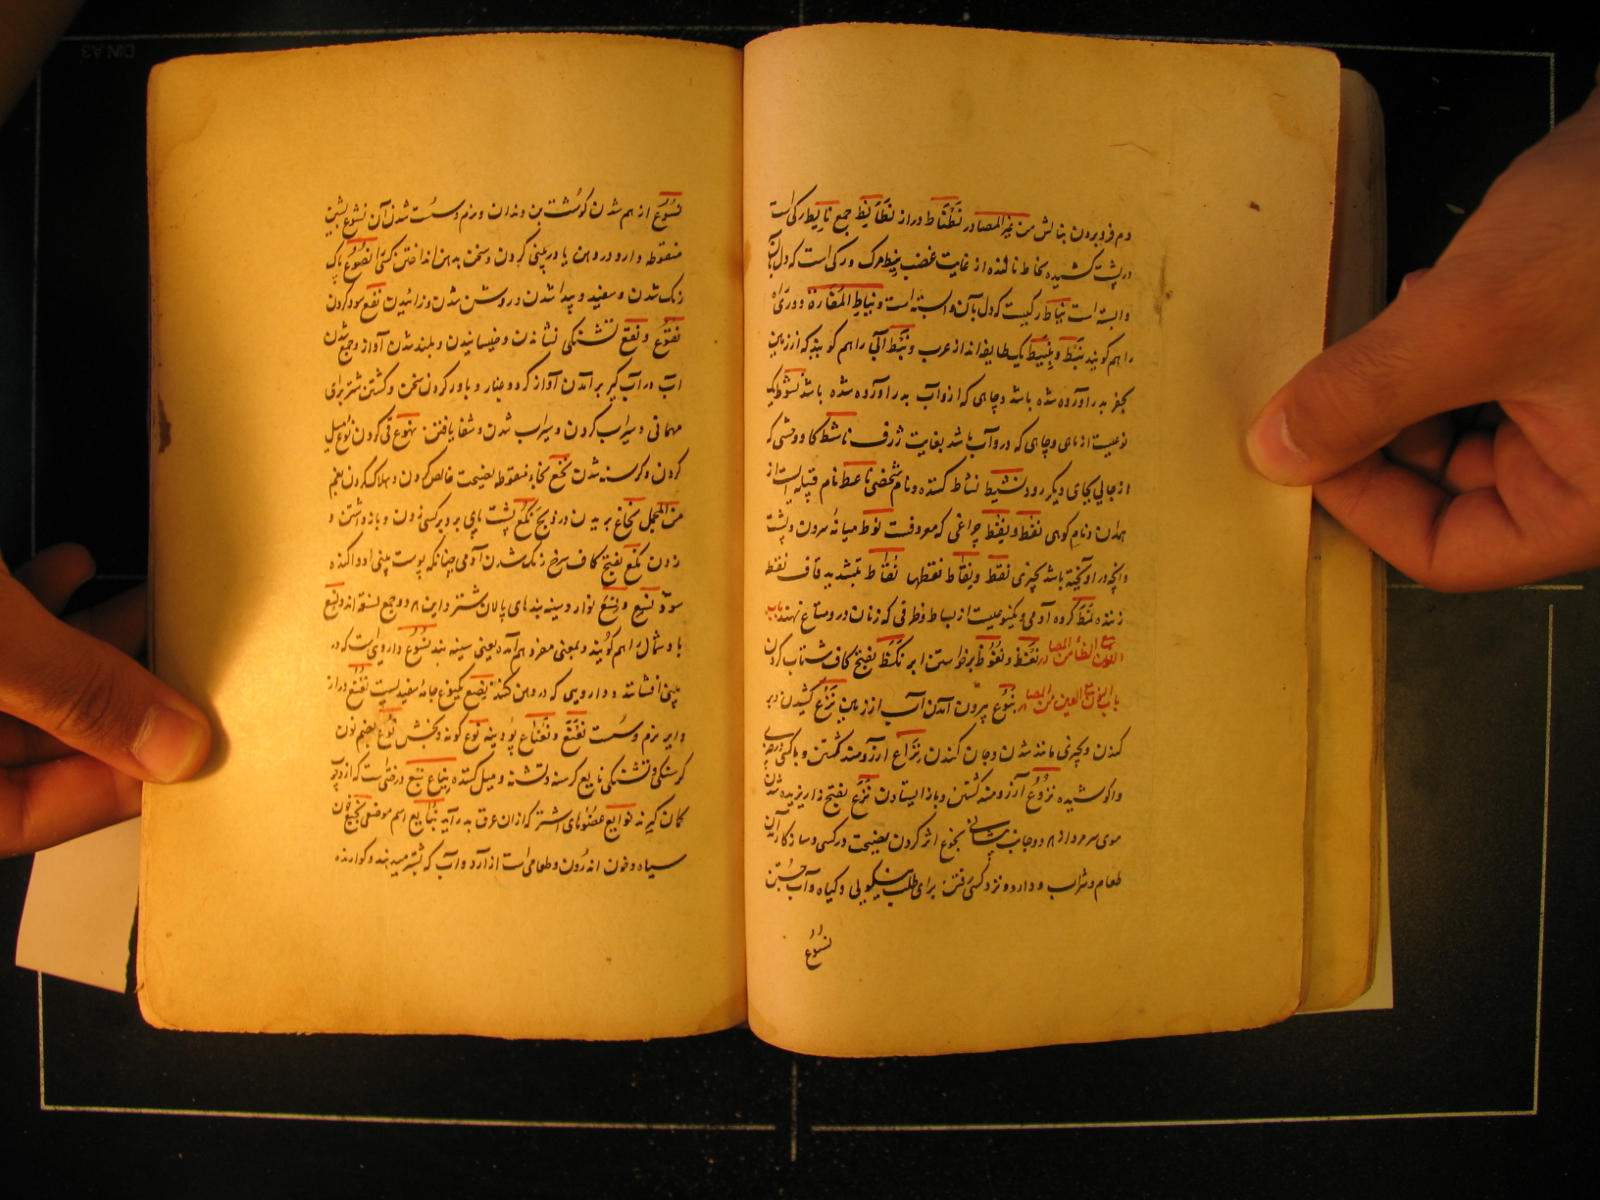 دم فرو بردن بنالش من غیر المصادر نَطْنَاط دراز نَطَانِط جمع نایط رکی است
در پشت کشیده نحاط نالنده از غایت غضب نیط مرک و رکی است که دل بآن
وابسته است نیاط رکیست که دل بآن وابسته است و نیاط المفازة دوری راه
را هم کویند نَبَط و نَبِیط یک طایفه اند از عرب و نَبَط آبی را هم کویند که از زمین
بحفر بدر آورده شده باشد و چاهی که ازو آب بدر آورده شده باشد نشوط یک
نوعیست از ماهی و چاهی که درو آب باشد بغایت ژرف ناشط کاو وحشی که
از جائی بجای دیکر رود نشیط نشاط کننده و نام شخصی ناعط نام قبیله ایست از
همدان و نام کوهی نَفْط و نِفْط چراغی که معروفست نَوط میانهٔ سرون و پشت
وانچه در آویخته باشد بچیزی نقط و نِقاط نقطها نَقّاط بتشدید قاف نقط
زننده نَمَط کروه آدمی و یکنوعیست از بساط و طرقی که زنان در و متاع نهند باب
النون مع الظا من المصادر نَعْظ و نُعُوظ برخاستن ایر نَکَظ بفتح کاف شتاب کردن
باب النون مع العین من المصادر نُبُوع بیرون آمدن آب از زمین نَزْع کشیدن و بر
کندن و بچیزی مانند شدن و جان کندن نِزَاع آرزومند کشتن و با کسی در چیزی
واکوشیده نُزُوع آرزومند کشتن و باز ایستادن نَزَع بفتح زا ریزیده شدن
موی سر مرد از هر دو جانب پیشانی نجوع اثر کردن نصیحت در کسی و سازکار آمدن
طعام و شراب و دارو و نزد کسی رفتن برای طلب نیکویی و کیاه و آب جستن
نسُوع
نُسُوع از هم شدن کوشت بن دندان و نرم و سست شدن آن نشوع بشین
منقوطه دارو در دهن یا در بینی کردن و سخن به دهن انداختن کسی را نصوع پاک
رنک شدن و سفید و پیدا شدن و روشن شدن و زائیدن نفع سود کردن
نقوع و نقع تشنکی نشاندن و خیسانیدن و بلند شدن آواز و جمع شدن
آب در آب کیر بر آمدن آواز کرد و غبار و باور کردن سخن و کشتن شتر برای
مهمانی و سیراب کردن و سیراب شدن و شفا یافتن نهوع قی کردن نوع میل
کردن و کرسنه شدن نخع بخاء منقوطه نصیحت خالص کردن و هلاک کردن بغم
من المجمل نخاع بریدن در ذبح نکع پشت پای بر دبر کسی زدن و باز داشتن و
زدن نکع بفتح کاف سرخ رنک شدن آدمی چنانکه پوست بینی او واکنده
شود نِسع و نسع نوار و سینه بندهای پالان شتر و این هر دو جمع نسعه اند و نسع
باد شمال را هم کویند و بمعنی مفرد هم آمده یعنی سینه بند نشوع داروی است که در
بینی افشانند و دارویی که در دهن کنند نصع یکنوع جامهٔ سفیدیست نعنع دراز
و ایر نرم و سست نَعْنَع و نَعْنَاع پودینه نوع کونه و بخش نُوع بضم نون
کرسنکی و تشنکی نایع کرسنه و تشنه و میل کننده نِباع نبع درختی است که از و
کمان کیرند نوابع عضوهای اشتر که از ان عرق بدر آید نبایع اسم موضعی نجیع خون
سیاه و خون اندرون و طعامی است از آرد و آب که بشتر میدهند و کوارنده